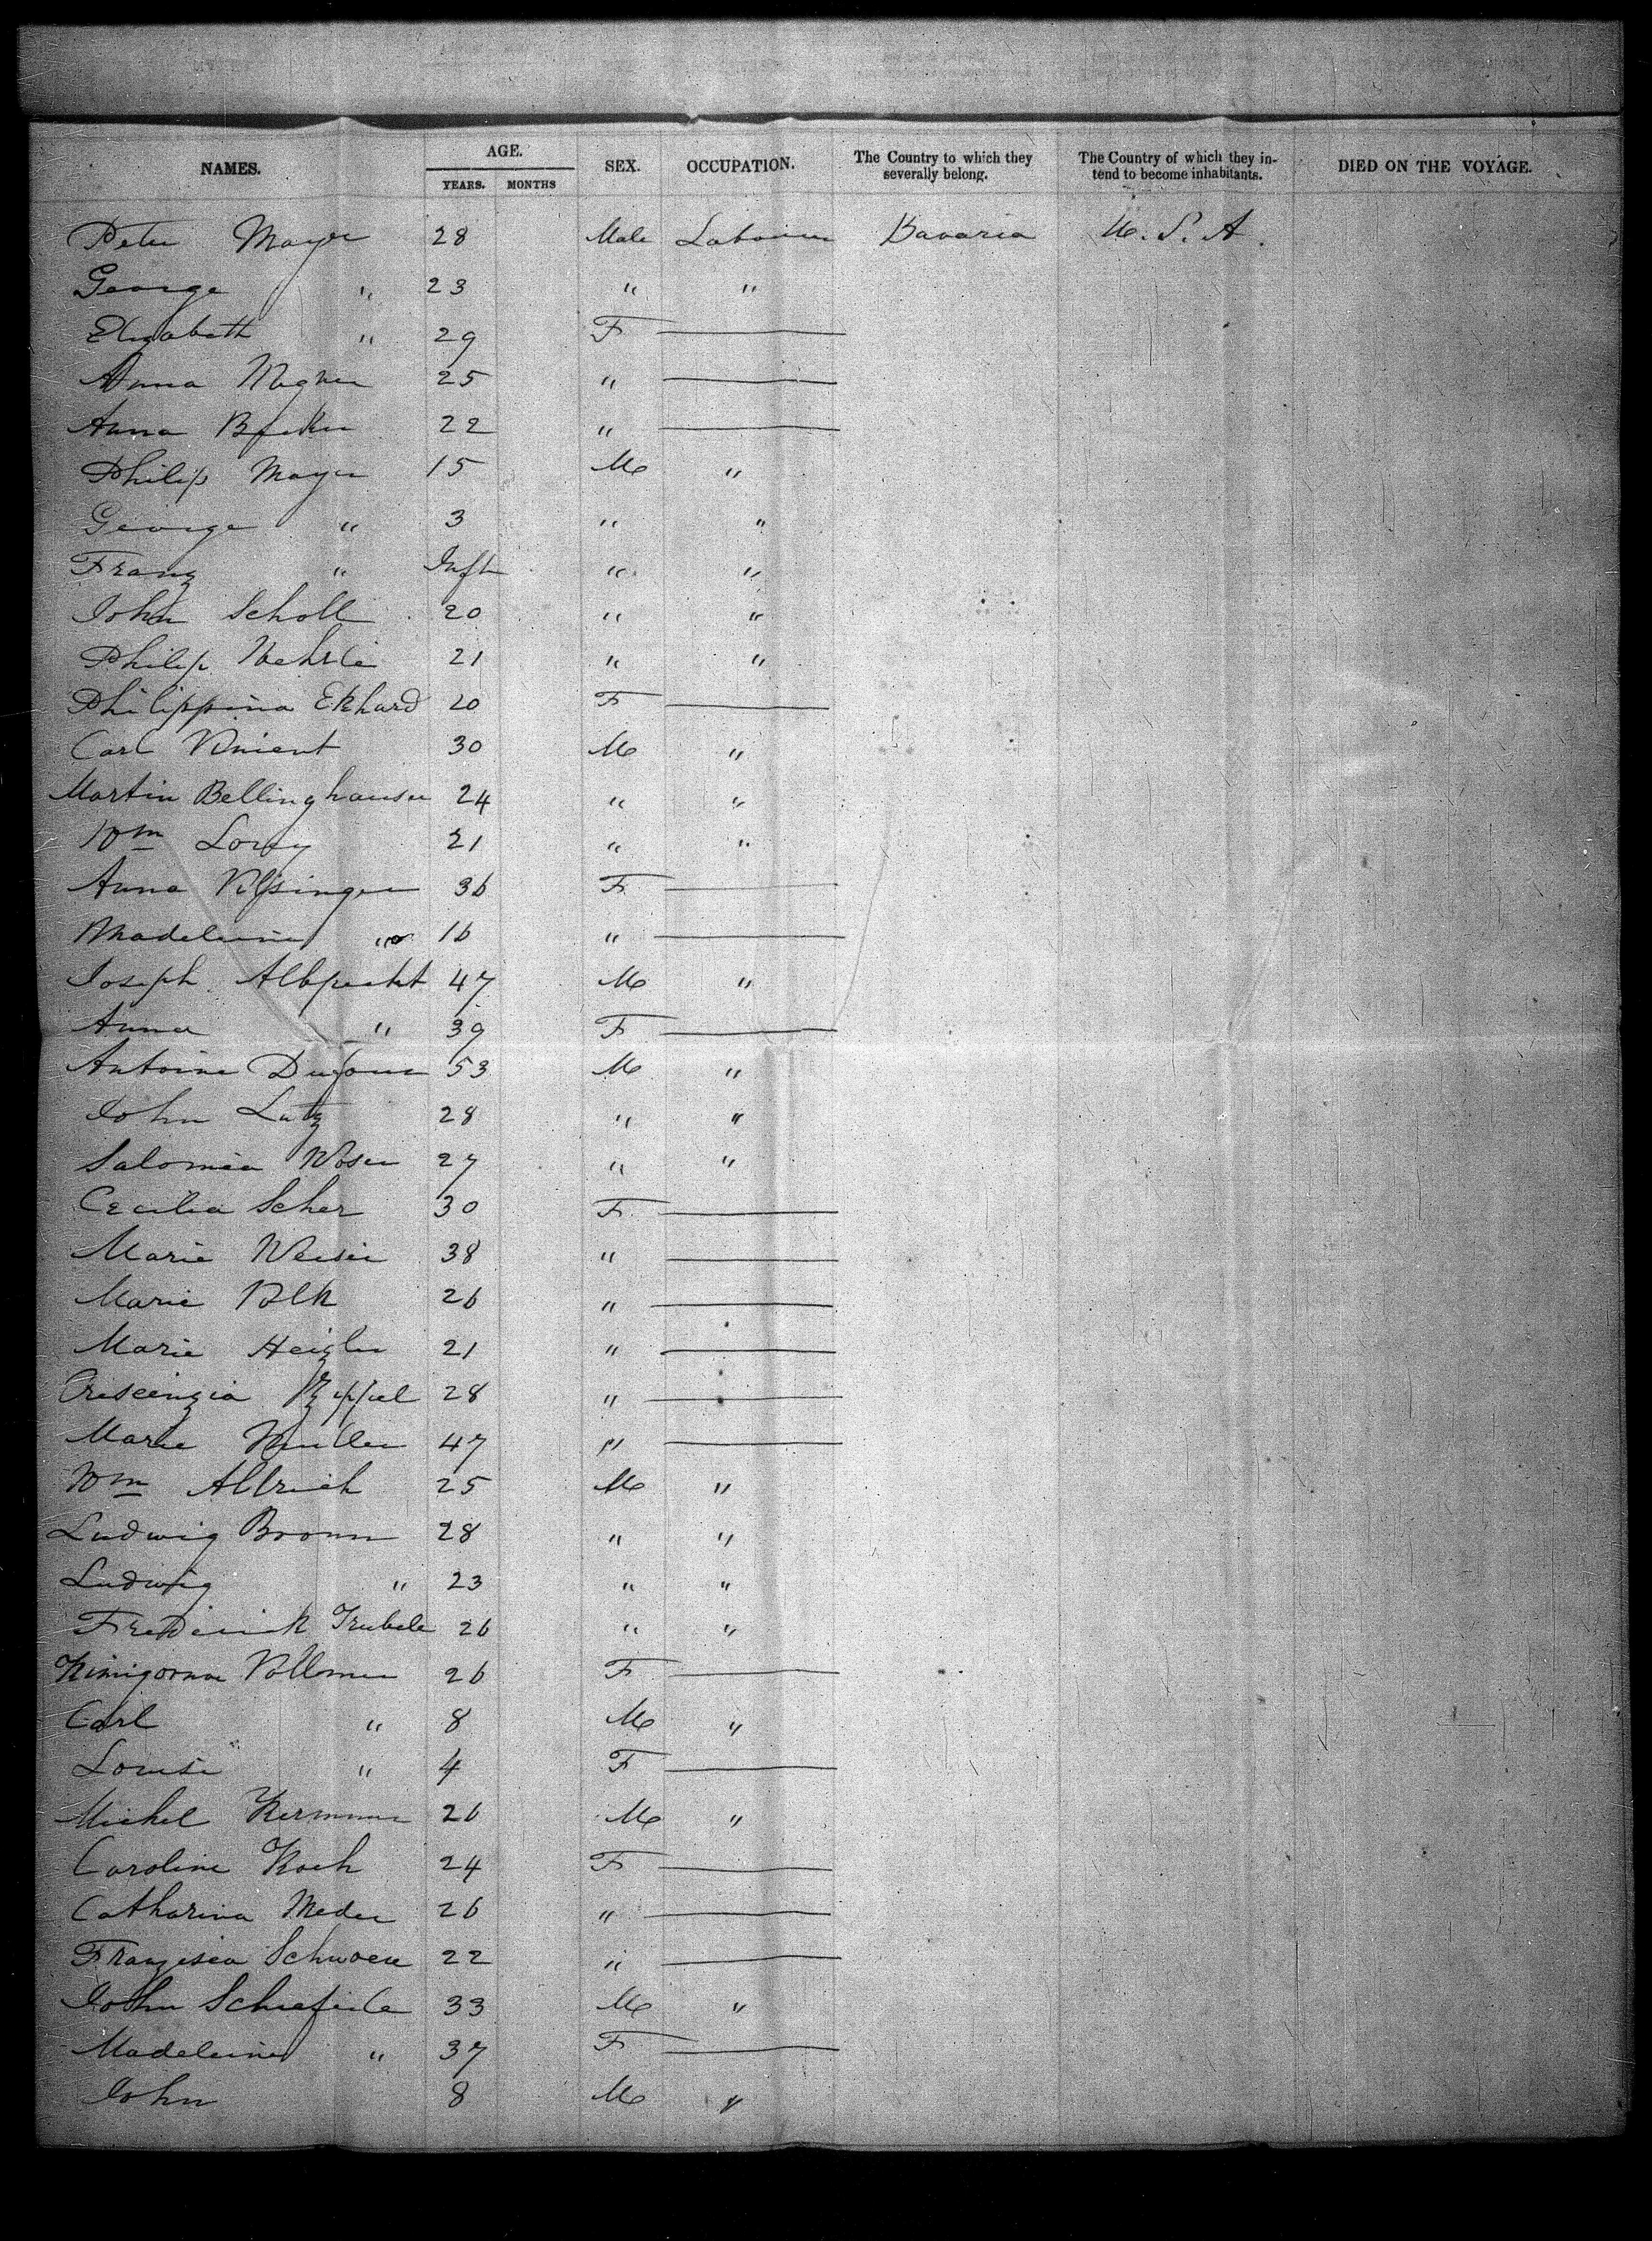 NAMES. AGE. SEX. OCCUPATION. The Country to which they severally belong. The Country of which they intend to become inhabitants. DIED ON THE VOYAGE.
YEARS. MONTHS
Peter Mayer 28 Male Labourer Bavaria U.S.A.
George " 23 " "
Elizabeth " 29 F
Anna Wagner 25 "
Anna 22 "
Philip Mayer 15 M "
George " 3 " "
Franz " Inft " "
John Scholl 20 " "
Philip 21 " "
Philippina Ekhard 20 F
Carl 30 M "
Martin Bellinghausen 24 " "
Wm Lorry 21 " "
Anna 36 F
Madeleine " 16 "
Joseph Albrecht 47 M "
Anna " 39 F
Antoine Dufour 53 M "
John Lutz 28 " "
Salomea 27 " "
Cecilia Scher 30 F
Marie 38 "
Marie Volk 26 "
Marie Heigler 21 "
Crescenzia 28 "
Marie 47 "
Wm Allrich 25 M "
Ludwig Braun 28 " "
Ludwig " 23 " "
Frederick Trubele 26 " "
Vollmer 26 F
Carl " 8 M "
Louise " 4 F
Michel 26 M "
Caroline Koch 24 F
Catharina Meder 26 "
Franzisca 22 "
John 33 M "
Madeleine " 37 F
John 8 M "